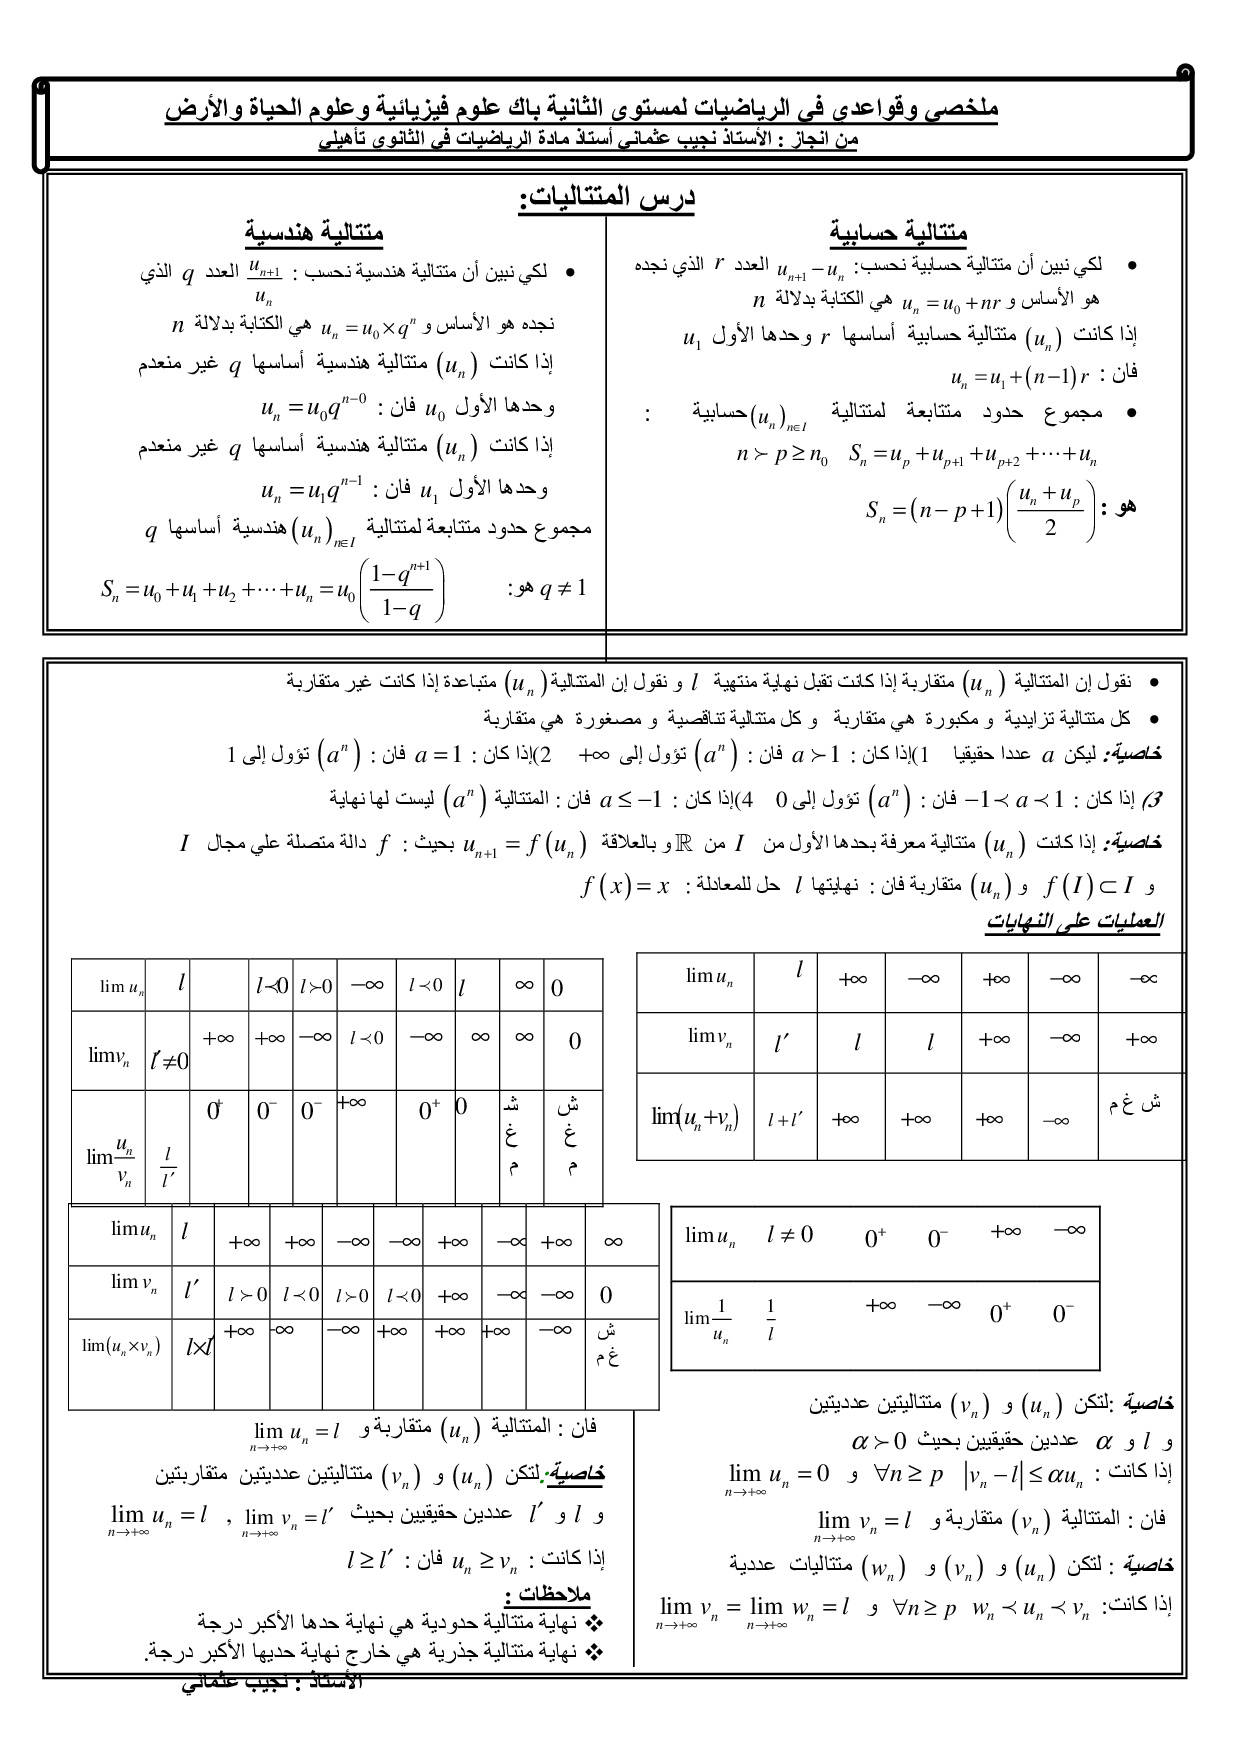 ملخصي وقواعدي في الرياضيات لمستوى الثانية باك علوم فيزيائية وعلوم الحياة والأرض
من انجاز : الأستاذ نجيب عثماني أستاذ مادة الرياضيات في الثانوي تأهيلي
درس المتتاليات:
متتالية حسابية
• لكي نبين أن متتالية حسابية نحسب: u_{n+1} − u_n العدد r الذي نجده
هو الأساس و u_n = u_0 + nr هي الكتابة بدلالة n
إذا كانت (u_n) متتالية حسابية أساسها r وحدها الأول u_1
فان : u_n = u_1 + (n−1)r
• مجموع حدود متتابعة لمتتالية (u_n)_{n∈I} حسابية :
S_n = u_p + u_{p+1} + u_{p+2} + ⋯ + u_n   n ≻ p ≥ n_0
هو : S_n = (n − p + 1)((u_n + u_p)/2)
متتالية هندسية
• لكي نبين أن متتالية هندسية نحسب : u_{n+1}/u_n العدد q الذي
نجده هو الأساس و u_n = u_0 × q^n هي الكتابة بدلالة n
إذا كانت (u_n) متتالية هندسية أساسها q غير منعدم
وحدها الأول u_0 فان : u_n = u_0 q^{n−0}
إذا كانت (u_n) متتالية هندسية أساسها q غير منعدم
وحدها الأول u_1 فان : u_n = u_1 q^{n−1}
مجموع حدود متتابعة لمتتالية (u_n)_{n∈I} هندسية أساسها q
q ≠ 1 هو: S_n = u_0 + u_1 + u_2 + ⋯ + u_n = u_0((1−q^{n+1})/(1−q))
• نقول إن المتتالية (u_n) متقاربة إذا كانت تقبل نهاية منتهية l و نقول إن المتتالية (u_n) متباعدة إذا كانت غير متقاربة
• كل متتالية تزايدية و مكبورة هي متقاربة و كل متتالية تناقصية و مصغورة هي متقاربة
خاصية: ليكن a عددا حقيقيا 1)إذا كان : a ≻ 1 فان : (a^n) تؤول إلى +∞ 2)إذا كان : a = 1 فان : (a^n) تؤول إلى 1
3) إذا كان : −1 ≺ a ≺ 1 فان : (a^n) تؤول إلى 0 4)إذا كان : a ≤ −1 فان : المتتالية (a^n) ليست لها نهاية
خاصية: إذا كانت (u_n) متتالية معرفة بحدها الأول من I من ℝ و بالعلاقة u_{n+1} = f(u_n) بحيث : f دالة متصلة علي مجال I
و f(I) ⊂ I و (u_n) متقاربة فان : نهايتها l حل للمعادلة : f(x) = x
العمليات على النهايات
lim u_n l +∞ −∞ +∞ −∞ −∞
lim v_n l′ l l +∞ −∞ +∞
lim(u_n+v_n) l+l′ +∞ +∞ +∞ −∞ ش غ م
lim u_n l l≺0 l≻0 −∞ l≺0 l ∞ 0
lim v_n l′≠0 +∞ +∞ −∞ l≺0 −∞ ∞ ∞ 0
lim u_n/v_n l/l′ 0+ 0− 0− +∞ 0+ 0 ش غ م ش غ م
lim u_n l ≠ 0 0+ 0− +∞ −∞
lim 1/u_n 1/l +∞ −∞ 0+ 0−
lim u_n l +∞ +∞ −∞ −∞ +∞ −∞ +∞ ∞
lim v_n l′ l≻0 l≺0 l≻0 l≺0 +∞ −∞ −∞ 0
lim(u_n×v_n) l×l′ +∞ -∞ −∞ +∞ +∞ +∞ −∞ ش غ م
خاصية :لتكن (u_n) و (v_n) متتاليتين عدديتين
و l و α عددين حقيقيين بحيث α ≻ 0
إذا كانت : |v_n − l| ≤ αu_n ∀n ≥ p و lim_{n→+∞} u_n = 0
فان : المتتالية (v_n) متقاربة و lim_{n→+∞} v_n = l
خاصية : لتكن (u_n) و (v_n) و (w_n) متتاليات عددية
إذا كانت: w_n ≺ u_n ≺ v_n ∀n ≥ p و lim_{n→+∞} v_n = lim_{n→+∞} w_n = l
فان : المتتالية (u_n) متقاربة و lim_{n→+∞} u_n = l
خاصية:لتكن (u_n) و (v_n) متتاليتين عدديتين متقاربتين
و l و l′ عددين حقيقيين بحيث lim_{n→+∞} v_n = l′ , lim_{n→+∞} u_n = l
إذا كانت : u_n ≥ v_n فان : l ≥ l′
ملاحظات :
❖ نهاية متتالية حدودية هي نهاية حدها الأكبر درجة
❖ نهاية متتالية جذرية هي خارج نهاية حديها الأكبر درجة.
الأستاذ : نجيب عثماني